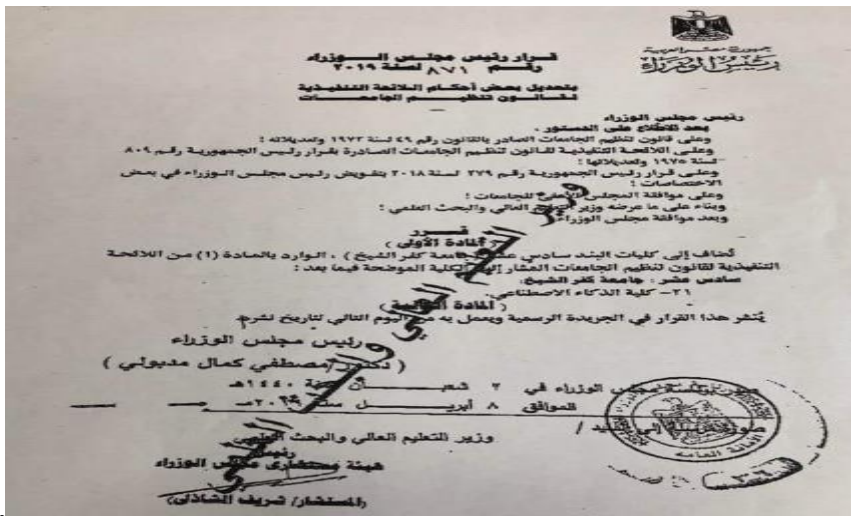 جمهورية مصر العربية
رئيس الوزراء
قرار رئيس مجلس الوزراء
رقم ٨٧١ لسنة ٢٠١٩
بتعديل بعض أحكام اللائحة التنفيذية
لقانون تنظيم الجامعات
رئيس مجلس الوزراء
بعد الاطلاع على الدستور ،
وعلى قانون تنظيم الجامعات الصادر بالقانون رقم ٤٩ لسنة ١٩٧٢ وتعديلاته ؛
وعلى اللائحة التنفيذية لقانون تنظيم الجامعات الصادرة بقرار رئيس الجمهورية رقم ٨٠٩
لسنة ١٩٧٥ وتعديلاتها ؛
وعلى قرار رئيس الجمهورية رقم ٢٧٩ لسنة ٢٠١٨ بتفويض رئيس مجلس الوزراء في بعض
الاختصاصات ؛
وعلى موافقة المجلس الأعلى للجامعات ؛
وبناء على ما عرضه وزير التعليم العالي والبحث العلمي ؛
وبعد موافقة مجلس الوزراء
قرر
( المادة الأولى )
تُضاف إلى كليات البند سادس عشر ( جامعة كفر الشيخ ) ، الوارد بالمادة (١) من اللائحة
التنفيذية لقانون تنظيم الجامعات المشار إليها الكلية الموضحة فيما بعد :
سادس عشر : جامعة كفر الشيخ:
٢١- كلية الذكاء الاصطناعي.
( المادة الثانية )
يُنشر هذا القرار في الجريدة الرسمية ويعمل به من اليوم التالي لتاريخ نشره
رئيس مجلس الوزراء
( دكتور/ مصطفي كمال مدبولي )
مجلس الوزراء في ٢ شعبان سنة ١٤٤٠هـ
الموافق ٨ أبريل سنة ٢٠١٩م
وزير التعليم العالي والبحث العلمي
صورة مرسلة إلى السيد /
رئيس
هيئة مستشاري مجلس الوزراء
(المستشار/ شريف الشاذلي)
وزير التعليم العالي والبحث العلمي
الأمانة العامة